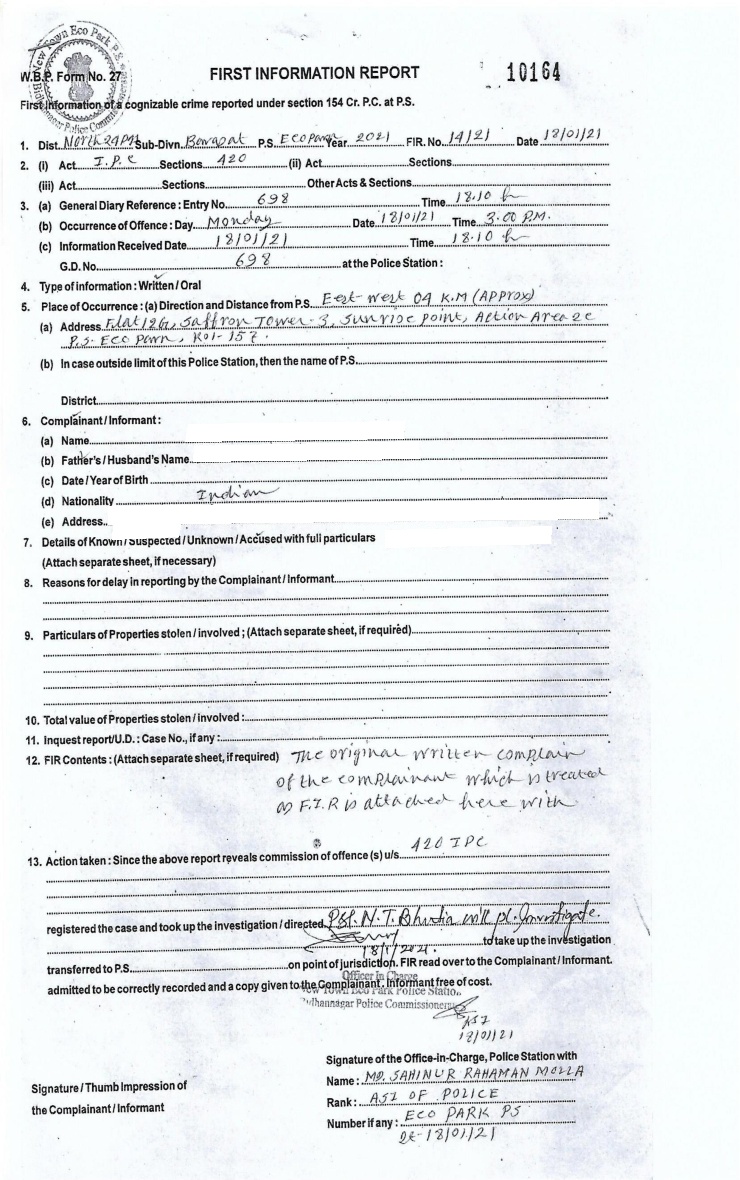 New Town Eco Park P.S.
Bidhannagar Police Commissionerate
W.B.P. Form No. 27
FIRST INFORMATION REPORT
10164
First Information of a cognizable crime reported under section 154 Cr. P.C. at P.S.
1. Dist. North 24 Pgs Sub-Divn. Barasat P.S. Eco Park Year 2021 FIR. No. 14/21 Date 18/01/21
2. (i) Act I.P.C Sections 420 (ii) Act Sections
(iii) Act Sections Other Acts & Sections
3. (a) General Diary Reference : Entry No. 698 Time 18.10 h
(b) Occurrence of Offence : Day Monday Date 18/01/21 Time 3.00 P.M.
(c) Information Received Date 18/01/21 Time 18.10 h
G.D. No. 698 at the Police Station :
4. Type of information : Written / Oral
5. Place of Occurrence : (a) Direction and Distance from P.S. East-West 04 K.M (APProx)
(a) Address Flat 12G, Saffron Tower-3, Sunrise point, Action Area 2C
P.S- Eco Park, Kol- 157.
(b) In case outside limit of this Police Station, then the name of P.S.
District
6. Complainant / Informant :
(a) Name
(b) Father's / Husband's Name
(c) Date / Year of Birth
(d) Nationality Indian
(e) Address
7. Details of Known / Suspected / Unknown / Accused with full particulars
(Attach separate sheet, if necessary)
8. Reasons for delay in reporting by the Complainant / Informant
9. Particulars of Properties stolen / involved ; (Attach separate sheet, if required)
10. Total value of Properties stolen / involved :
11. Inquest report/U.D. : Case No., if any :
12. FIR Contents : (Attach separate sheet, if required) The original written complain
of the complainant which is treated
as F.I.R is attached here with
13. Action taken : Since the above report reveals commission of offence (s) u/s 420 IPC
registered the case and took up the investigation / directed PSI. N. T. Bhutia will pl. Investigate.
to take up the investigation
18/1/2021.
transferred to P.S. on point of jurisdiction. FIR read over to the Complainant / Informant.
Officer in Charge
admitted to be correctly recorded and a copy given to the Complainant. Informant free of cost.
New Town Eco Park Police Station
Bidhannagar Police Commissionerate
ASI
18/01/21
Signature of the Office-in-Charge, Police Station with
Name : MD. SAHINUR RAHAMAN MOLLA
Signature / Thumb Impression of
Rank : ASI OF POLICE
the Complainant / Informant
Number if any : ECO PARK PS
Dt- 18/01/21